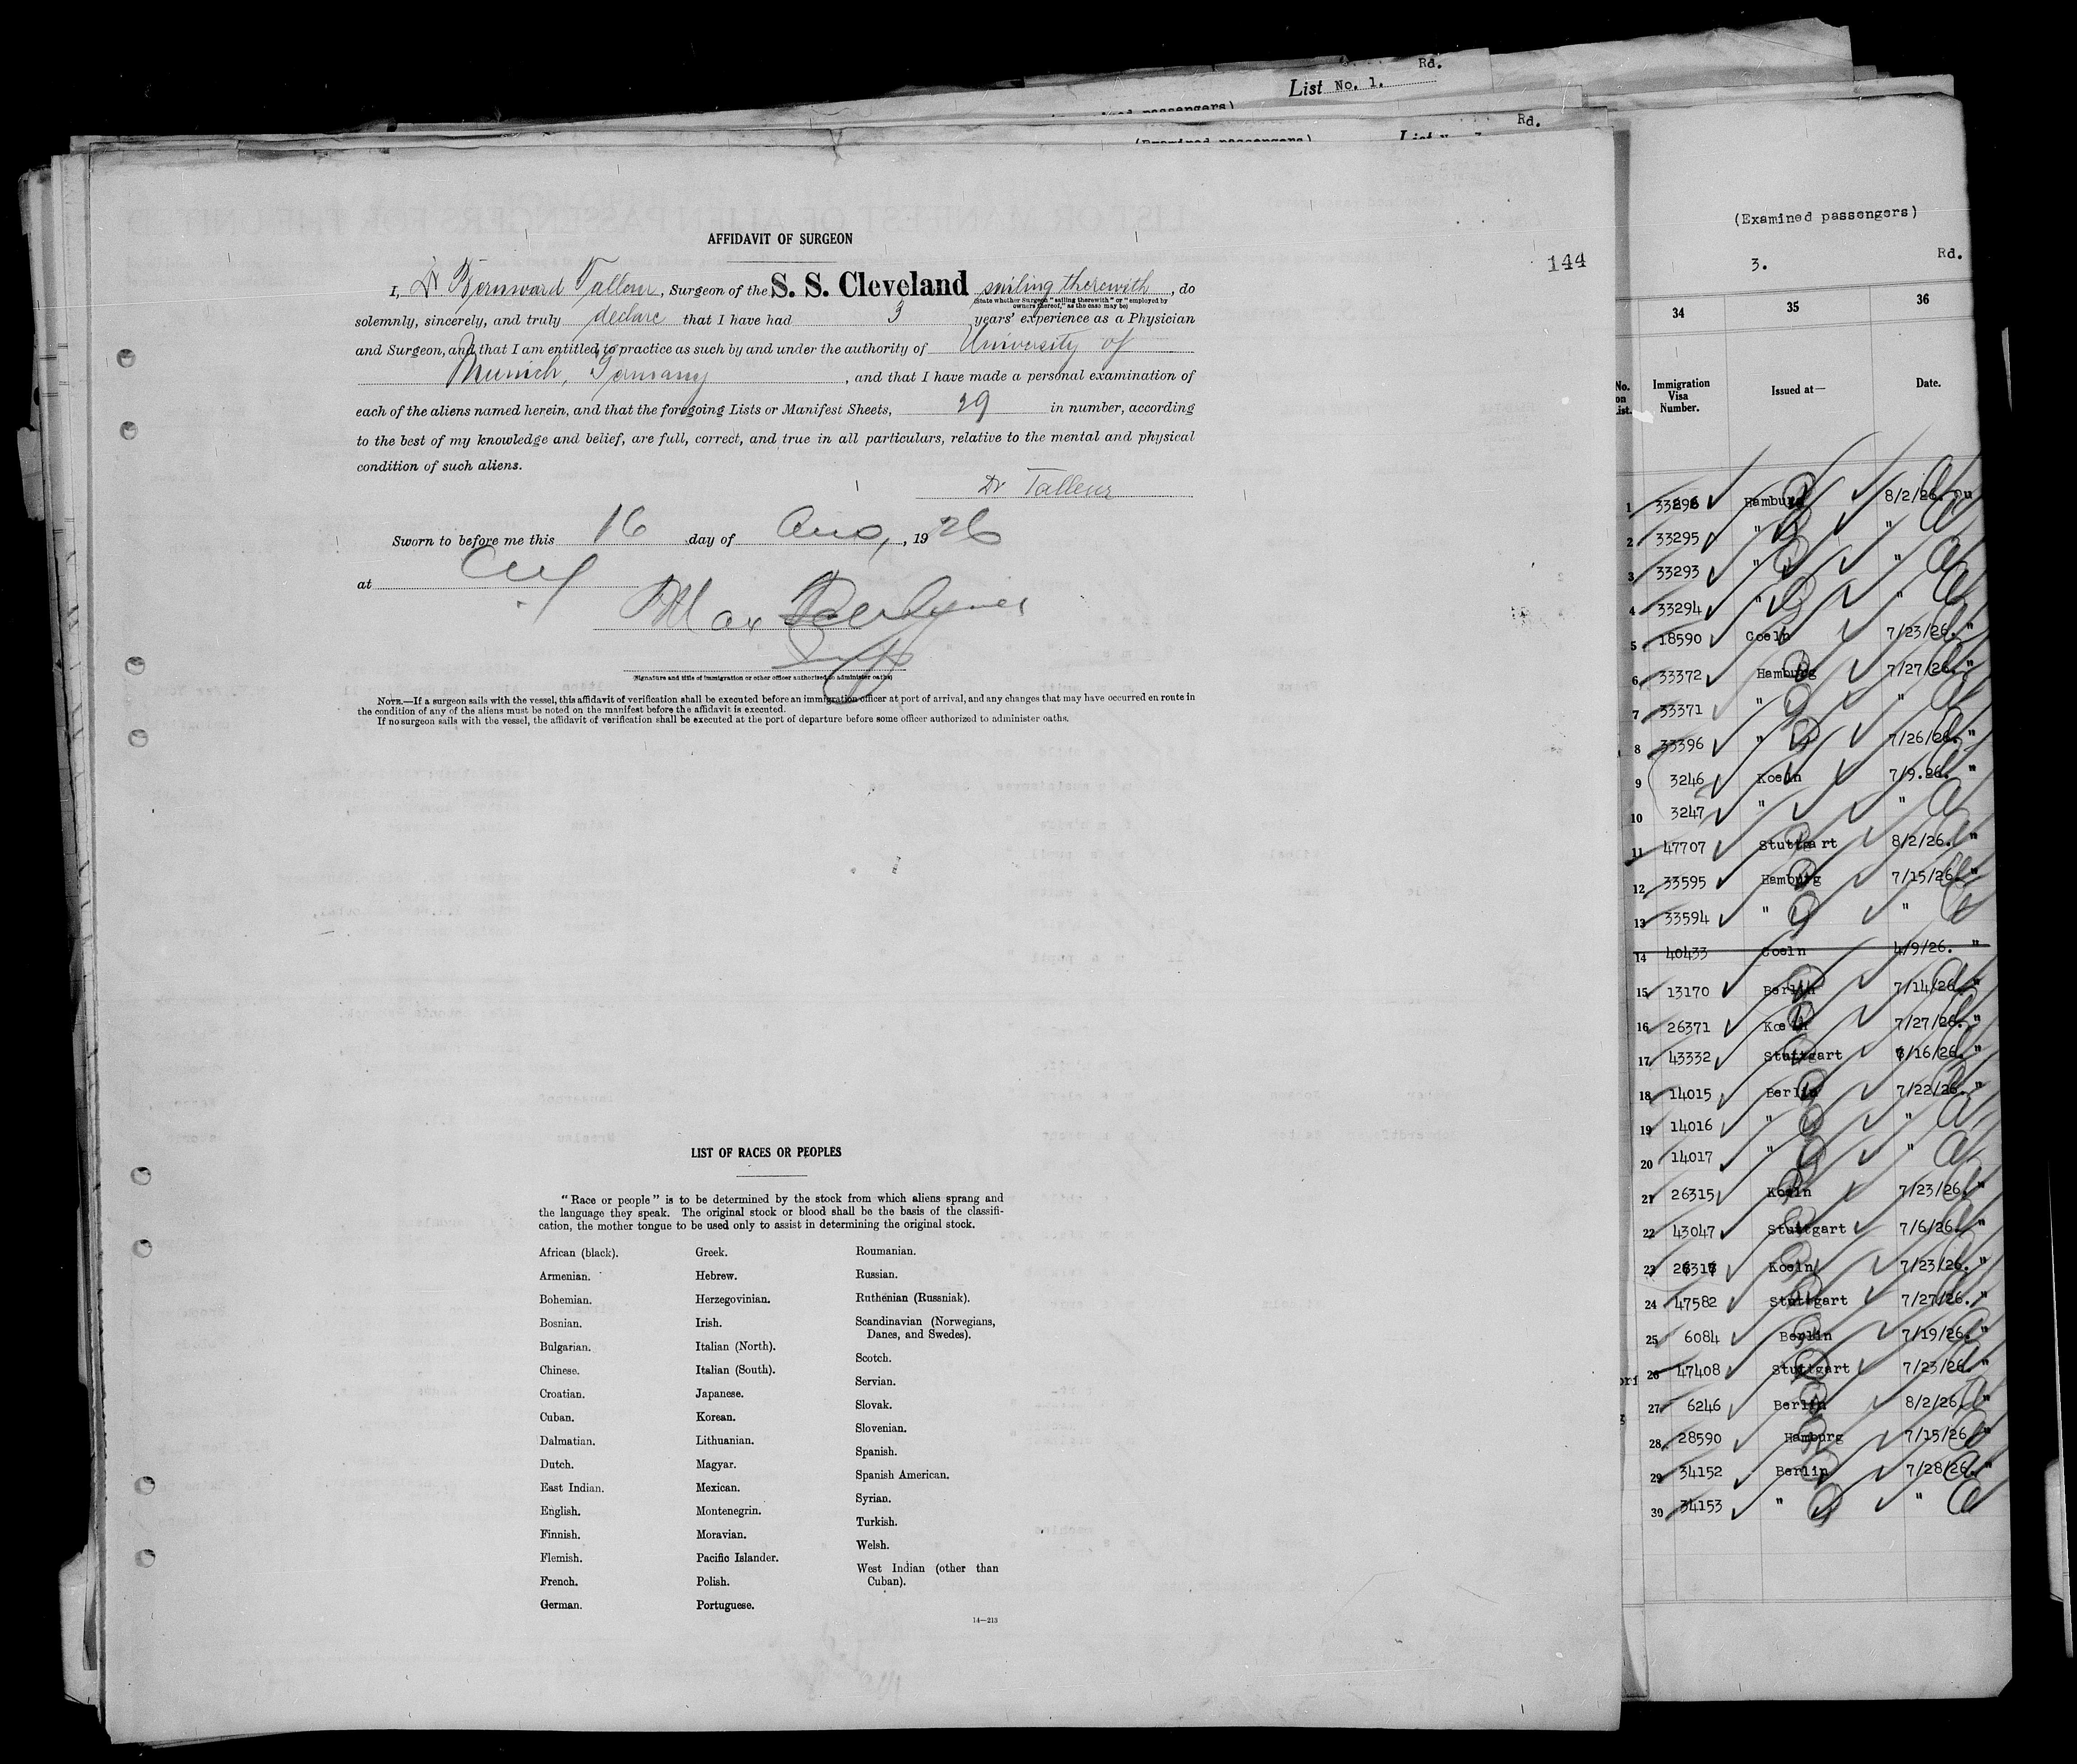 List No. 1.
Rd.
(Examined passengers)
Rd.
144
AFFIDAVIT OF SURGEON
I, Dr. Bernward Talleur, Surgeon of the S. S. Cleveland sailing therewith, do
(State whether Surgeon "sailing therewith" or "employed by
owners thereof," as the case may be)
solemnly, sincerely, and truly declare that I have had 3 years' experience as a Physician
and Surgeon, and that I am entitled to practice as such by and under the authority of University of
Munich, Germany, and that I have made a personal examination of
each of the aliens named herein, and that the foregoing Lists or Manifest Sheets, 29 in number, according
to the best of my knowledge and belief, are full, correct, and true in all particulars, relative to the mental and physical
condition of such aliens.
Dr Talleur
Sworn to before me this 16 day of Aug, 1926
at
Max
(Signature and title of immigration or other officer authorized to administer oaths)
NOTE.—If a surgeon sails with the vessel, this affidavit of verification shall be executed before an immigration officer at port of arrival, and any changes that may have occurred en route in
the condition of any of the aliens must be noted on the manifest before the affidavit is executed.
If no surgeon sails with the vessel, the affidavit of verification shall be executed at the port of departure before some officer authorized to administer oaths.
LIST OF RACES OR PEOPLES
"Race or people" is to be determined by the stock from which aliens sprang and
the language they speak. The original stock or blood shall be the basis of the classifi-
cation, the mother tongue to be used only to assist in determining the original stock.
African (black).
Armenian.
Bohemian.
Bosnian.
Bulgarian.
Chinese.
Croatian.
Cuban.
Dalmatian.
Dutch.
East Indian.
English.
Finnish.
Flemish.
French.
German.
Greek.
Hebrew.
Herzegovinian.
Irish.
Italian (North).
Italian (South).
Japanese.
Korean.
Lithuanian.
Magyar.
Mexican.
Montenegrin.
Moravian.
Pacific Islander.
Polish.
Portuguese.
Roumanian.
Russian.
Ruthenian (Russniak).
Scandinavian (Norwegians,
Danes, and Swedes).
Scotch.
Servian.
Slovak.
Slovenian.
Spanish.
Spanish American.
Syrian.
Turkish.
Welsh.
West Indian (other than
Cuban).
14—213
(Examined passengers)
3. Rd.
34 35 36
No. on List. Immigration Visa Number. Issued at— Date.
1 33296 Hamburg 8/2/26. qu
2 33295 " "
3 33293 " "
4 33294 " "
5 18590 Coeln 7/23/26. "
6 33372 Hamburg 7/27/26. "
7 33371 " "
8 33396 " 7/26/26. "
9 3246 Koeln 7/9.26. "
10 3247 " "
11 47707 Stuttgart 8/2/26. "
12 33595 Hamburg 7/15/26. "
13 33594 " "
14 40433 Coeln 4/9/26. "
15 13170 Berlin 7/14/26. "
16 26371 Koeln 7/27/26. "
17 43332 Stuttgart /16/26. "
18 14015 Berlin 7/22/26. "
19 14016 " "
20 14017 " "
21 26315 Koeln 7/23/26. "
22 43047 Stuttgart 7/6/26. "
23 Koeln 7/23/26. "
24 47582 Stuttgart 7/27/26. "
25 6084 Berlin 7/19/26. "
26 47408 Stuttgart 7/23/26. "
27 6246 Berlin 8/2/26. "
28 28590 Hamburg 7/15/26. "
29 34152 Berlin 7/28/26. "
30 34153 " "